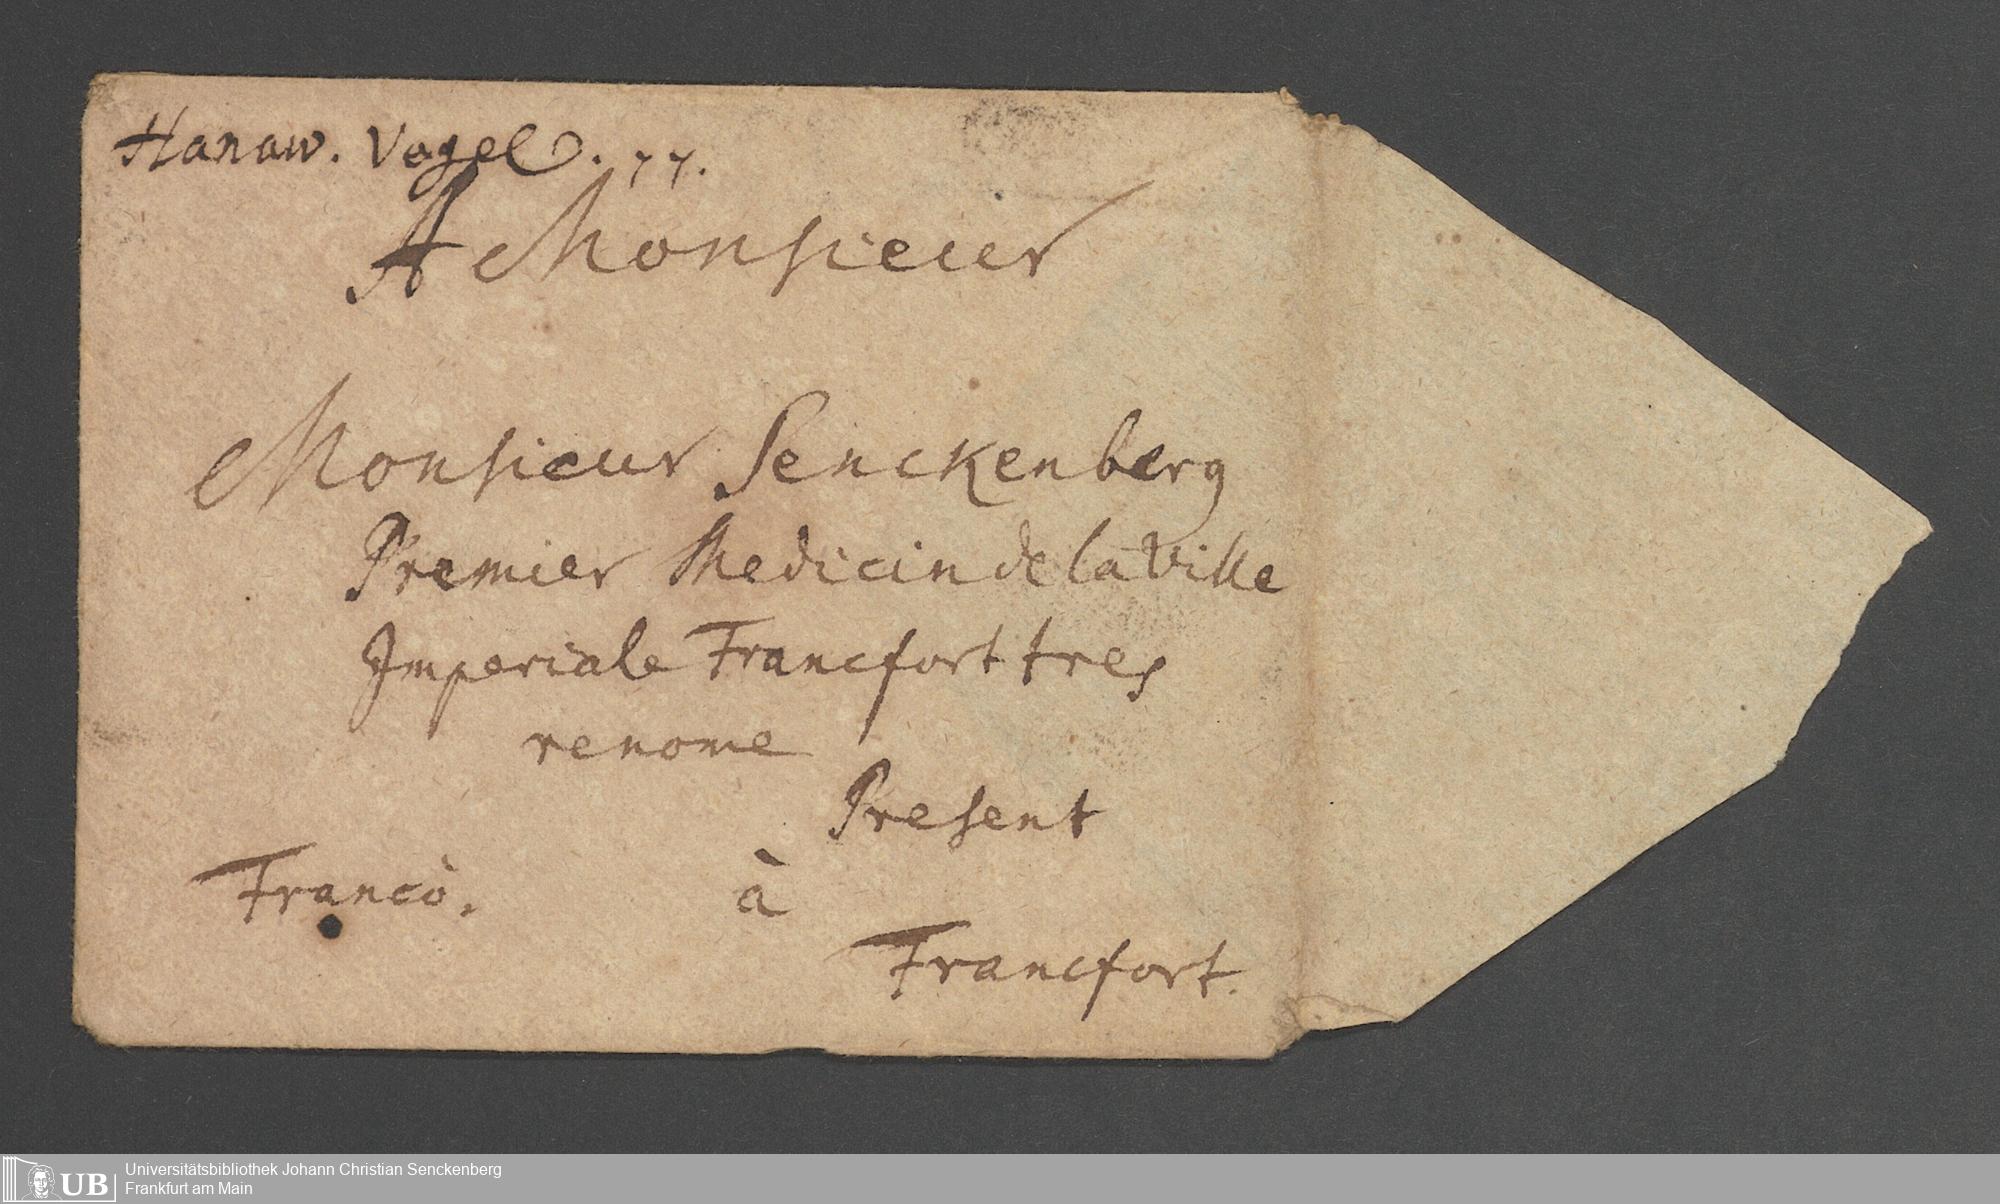 Hanaw. Vogel. 77.
A Monsieur
Monsieur Senckenberg
Premier Medicin de la Ville
Imperiale Francfort tres
renome
Present
Francò. à
Francfort.
Universitätsbibliothek Johann Christian Senckenberg
Frankfurt am Main
UB